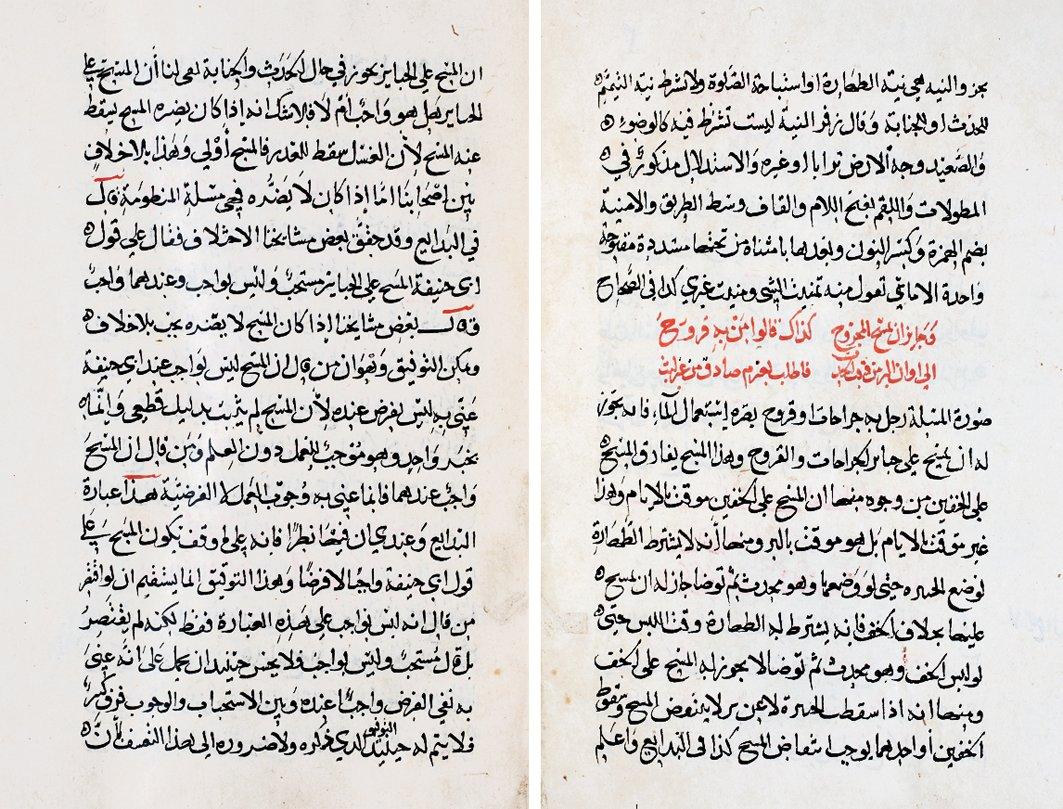 يجز والنيه هي نية الطهارة او استباحة الصلوة ولا تشرط نية التيمم
للحدث او للجنابة وقال زفر النية ليست تشرط فيه كالوضوء
والصعيد وجه الارض ترابا او غيره والاستدلال مذكور في
المطولات واللقم بفتح اللام والقاف وسط الطريق والامنية
بضم الهمزة وكسر النون وبعدها يا مثناة من تحتها مشددة مفتوحة
واحدة الاماني تقول منه تمنيت الشي ومنيت غيري كذا في الصحاح
وجاز ان يمسح المجروح كذاك قالوا من به قروح
الى اوان البرء فاطلب بعزم صادق
صورة المسئلة رجل به جراحات او قروح يضره استعمال الماء فانه يجوز
له ان يمسح على جبائر الجراحات والقروح وهذا المسح يفارق المسح
على الخفين من وجوه منها ان المسح على الخفين موقت بالايام وهذا
غير موقت بالايام بل هو موقت بالبرء ومنها أنه لا يشترط الطهارة
لوضع الجبيرة حتى لو وضعها وهو محدث ثم توضا جاز له ان يمسح
عليها بخلاف الخف فانه يشترط له الطهارة وقت اللبس حتى
لو لبس الخف وهو محدث ثم توضا لا يجوز له المسح على الخف
ومنها انه اذا سقطت الجبيرة لا عن برء لا ينتقض المسح وسقوط
الخفين أو احدهما يوجب انتقاض المسح كذا في البدايع واعلم
ان المسح على الجباير يجوز في حال الحدث والجنابة بقى لنا أن المسح على
الجباير هل هو واجب أم لا فلا شك انه إذا كان يضره المسح يسقط
عنه المسح لأن الغسل سقط للعذر فالمسح أولى وهذا بلا خلاف
بين اصحابنا أما إذا كان لا يضره فهي مسئلة المنظومة قال
في البدايع وقد حقق بعض مشايخنا الاختلاف فقال على قول
ابي حنيفة المسح على الجباير مستحب وليس بواجب وعندهما واجب
وقال بعض مشايخنا إذا كان المسح لا يضره يجب بلا خلاف
ويمكن التوفيق وهو ان من قال ان المسح ليس بواجب عند ابي حنيفة
عنى به ليس بفرض عنده لأن المسح لم يثبت بدليل قطعي وإنما
بخبر واحد وهو موجب للعمل دون العلم ومن قال ان المسح
واجب عندهما فانما عنى به وجوب العمل لا الفرضية هذا عبارة
البدايع وعندي ان فيها نظرا فانه على وقف يكون المسح على
قول ابي حنيفة واجبا لا فرضا وهذا التوفيق انما يستقيم ان لو اقتصر
من قال انه ليس بواجب على هذه العبارة فقط لكنه لم يقتصر
بل قال مستحب وليس بواجب فلا يحسن حينئذ ان يحمل على انه عنى
به نفي الفرض واجبا عنده وبين الاستحباب والوجوب فرق كبير
فلا يتم له حينئذ التوفيق الذي ذكره ولا ضرورة إلى هذا التعسف لأن